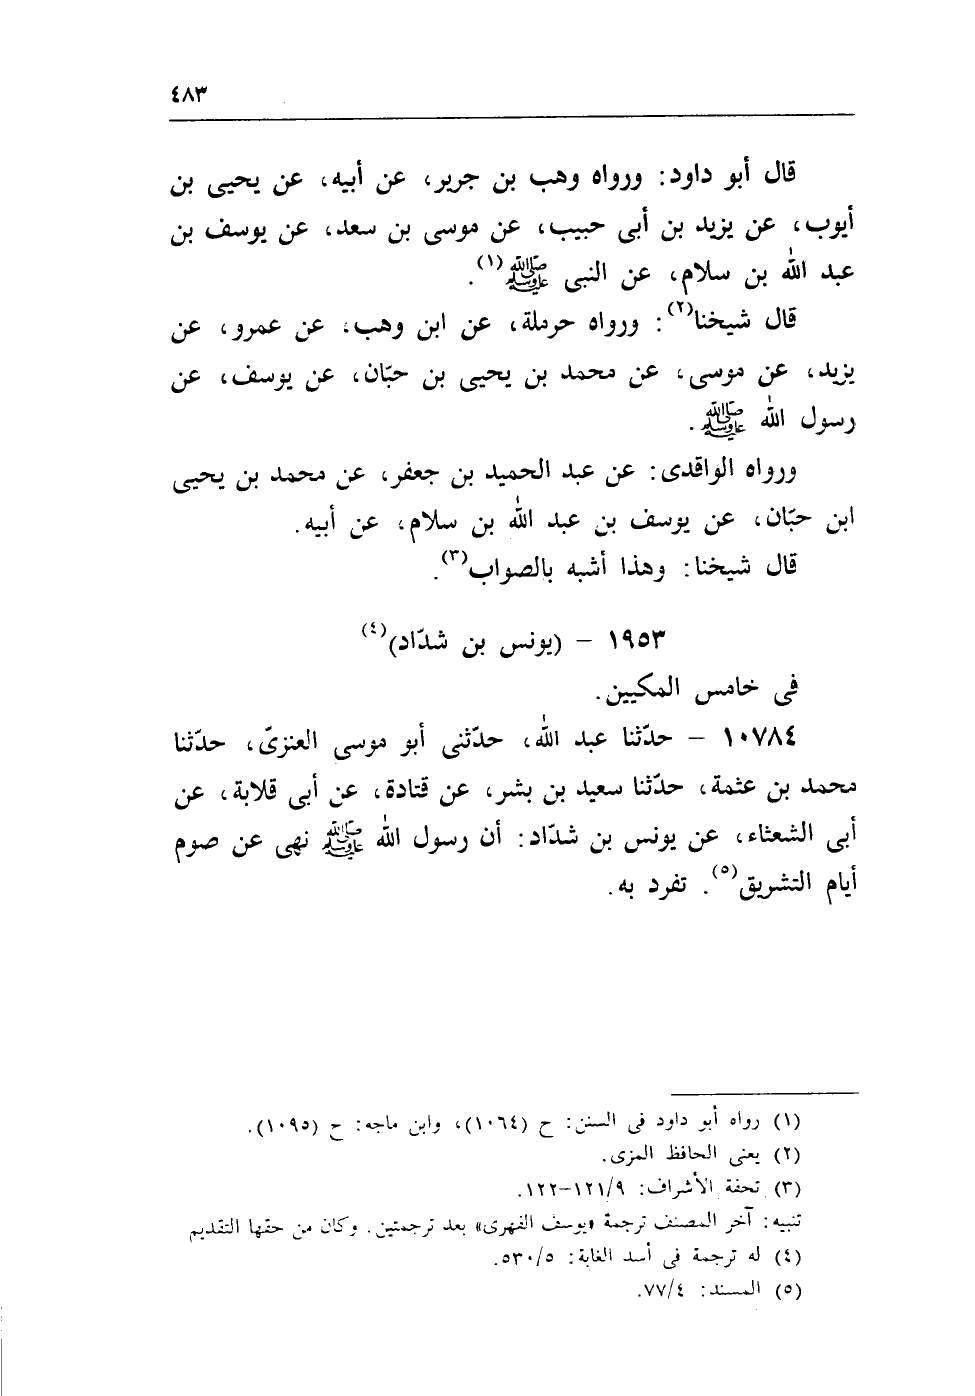 ٤٨٣
قال أبو داود: ورواه وهب بن جرير، عن أبيه، عن يحيى بن
أيوب، عن يزيد بن أبى حبيب، عن موسى بن سعد، عن يوسف بن
عبد الله بن سلام، عن النبى ﷺ(١).
قال شيخنا(٢): ورواه حرملة، عن ابن وهب، عن عمرو، عن
يزيد، عن موسى، عن محمد بن يحيى بن حبّان، عن يوسف، عن
رسول الله ﷺ.
ورواه الواقدى: عن عبد الحميد بن جعفر، عن محمد بن يحيى
ابن حبّان، عن يوسف بن عبد الله بن سلام، عن أبيه.
قال شيخنا: وهذا أشبه بالصواب(٣).
١٩٥٣ - (يونس بن شدّاد)(٤)
فى خامس المكيين.
١٠٧٨٤ - حدّثنا عبد الله، حدّثنى أبو موسى العنزىّ، حدّثنا
محمد بن عثمة، حدّثنا سعيد بن بشر، عن قتادة، عن أبى قلابة، عن
أبى الشعثاء، عن يونس بن شدّاد: أن رسول الله ﷺ نهى عن صوم
أيام التشريق(٥). تفرد به.
(١) رواه أبو داود فى السنن: ح (١٠٦٤)، وابن ماجه: ح (١٠٩٥).
(٢) يعنى الحافظ المزى.
(٣) تحفة الأشراف: ١٢١/٩-١٢٢.
تنبيه: آخر المصنف ترجمة «يوسف الفهرى» بعد ترجمتين. وكان من حقها التقديم
(٤) له ترجمة فى أسد الغابة: ٥٣٠/٥.
(٥) المسند: ٧٧/٤.